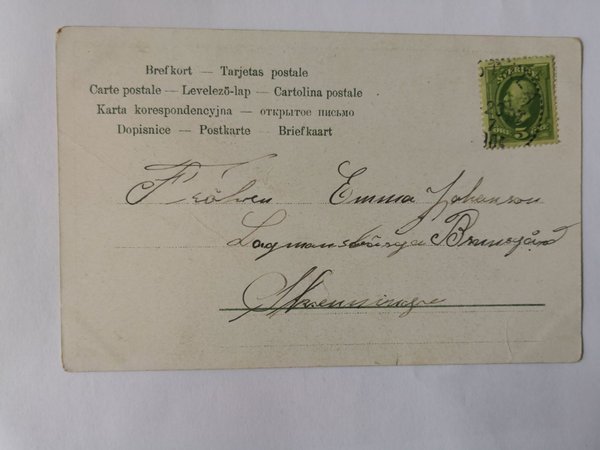 Brefkort — Tarjetas postale
Carte postale — Levelező-lap — Cartolina postale
Karta korespondencyjna — открытое письмо
Dopisnice — Postkarte — Briefkaart
SVERIGE
5
Fröken Emma Johanson
Lagmansbärga
Skenninge